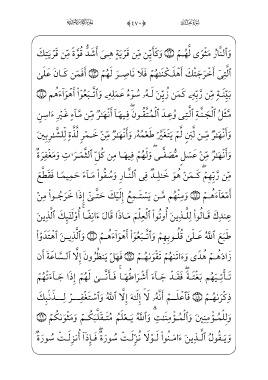 وَٱلنَّارُ مَثْوًى لَّهُمْ ۝ وَكَأَيِّن مِّن قَرْيَةٍ هِىَ أَشَدُّ قُوَّةً مِّن قَرْيَتِكَ
ٱلَّتِىٓ أَخْرَجَتْكَ أَهْلَكْنَـٰهُمْ فَلَا نَاصِرَ لَهُمْ ۝ أَفَمَن كَانَ عَلَىٰ
بَيِّنَةٍ مِّن رَّبِّهِۦ كَمَن زُيِّنَ لَهُۥ سُوٓءُ عَمَلِهِۦ وَٱتَّبَعُوٓا۟ أَهْوَآءَهُم ۝
مَّثَلُ ٱلْجَنَّةِ ٱلَّتِى وُعِدَ ٱلْمُتَّقُونَ ۖ فِيهَآ أَنْهَـٰرٌ مِّن مَّآءٍ غَيْرِ ءَاسِنٍ
وَأَنْهَـٰرٌ مِّن لَّبَنٍ لَّمْ يَتَغَيَّرْ طَعْمُهُۥ وَأَنْهَـٰرٌ مِّنْ خَمْرٍ لَّذَّةٍ لِّلشَّـٰرِبِينَ
وَأَنْهَـٰرٌ مِّنْ عَسَلٍ مُّصَفًّى ۖ وَلَهُمْ فِيهَا مِن كُلِّ ٱلثَّمَرَٰتِ وَمَغْفِرَةٌ
مِّن رَّبِّهِمْ ۖ كَمَنْ هُوَ خَـٰلِدٌ فِى ٱلنَّارِ وَسُقُوا۟ مَآءً حَمِيمًا فَقَطَّعَ
أَمْعَآءَهُمْ ۝ وَمِنْهُم مَّن يَسْتَمِعُ إِلَيْكَ حَتَّىٰٓ إِذَا خَرَجُوا۟ مِنْ
عِندِكَ قَالُوا۟ لِلَّذِينَ أُوتُوا۟ ٱلْعِلْمَ مَاذَا قَالَ ءَانِفًا ۚ أُو۟لَـٰٓئِكَ ٱلَّذِينَ
طَبَعَ ٱللَّهُ عَلَىٰ قُلُوبِهِمْ وَٱتَّبَعُوٓا۟ أَهْوَآءَهُمْ ۝ وَٱلَّذِينَ ٱهْتَدَوْا۟
زَادَهُمْ هُدًى وَءَاتَىٰهُمْ تَقْوَىٰهُمْ ۝ فَهَلْ يَنظُرُونَ إِلَّا ٱلسَّاعَةَ أَن
تَأْتِيَهُم بَغْتَةً ۖ فَقَدْ جَآءَ أَشْرَاطُهَا ۚ فَأَنَّىٰ لَهُمْ إِذَا جَآءَتْهُمْ
ذِكْرَىٰهُمْ ۝ فَٱعْلَمْ أَنَّهُۥ لَآ إِلَـٰهَ إِلَّا ٱللَّهُ وَٱسْتَغْفِرْ لِذَنۢبِكَ
وَلِلْمُؤْمِنِينَ وَٱلْمُؤْمِنَـٰتِ ۗ وَٱللَّهُ يَعْلَمُ مُتَقَلَّبَكُمْ وَمَثْوَىٰكُمْ ۝
وَيَقُولُ ٱلَّذِينَ ءَامَنُوا۟ لَوْلَا نُزِّلَتْ سُورَةٌ ۖ فَإِذَآ أُنزِلَتْ سُورَةٌ